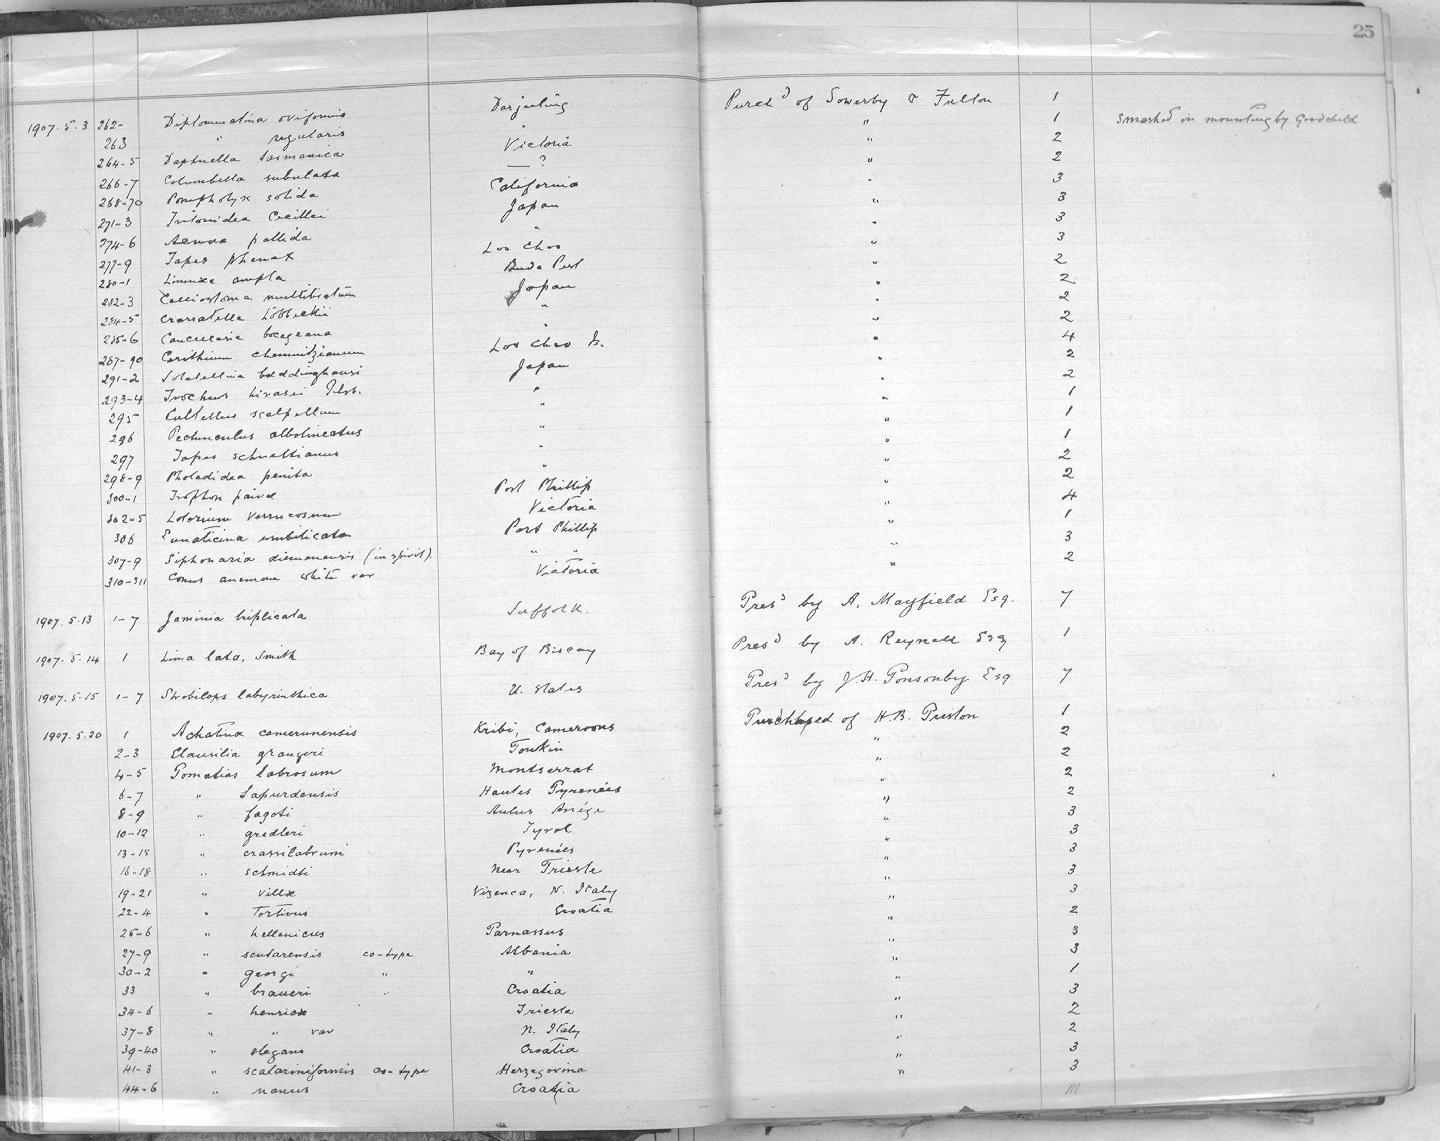 25
1907.5.3 262- Diplommatina oviformis Darjeeling Purchd of Sowerby & Fulton 1
263 " regularis " " 1 Smashed in mounting by Goodchild
264-5 Daphnella tasmanica Victoria " 2
266-7 Columbella subulata —? " 2
268-70 Pompholyx solida California " 3
271-3 Tritonidea Cecillei Japan " 3
274-6 pallida " " 3
277-9 Tapes phenax Loo Choo " 3
280-1 Limnæa ampla Buda Pest " 2
282-3 Calliostoma multilictum Japan " 2
284-5 Crassatella Löbbeckii " " 2
285-6 Cancellaria bocageana " " 2
287-90 Cerithium chemnitzianum Loo Choo Is. " 4
291-2 Soletellina boddinghausi Japan " 2
293-4 Trochus hirasei Pilsb. " " 2
295 Cultellus scalpellum " " 1
296 Pectunculus albolineatus " " 1
297 Tapes schnellianus " " 1
298-9 Pholadidea penita " " 2
300-1 Trophon paivæ Port Phillip " 2
302-5 Lotorium verrucosum Victoria " 4
306 Eunaticina umbilicata Port Phillip " 1
307-9 Siphonaria diemenensis (in spirit). " " " 3
310-311 Conus anemone white var Victoria " 2
1907.5.13 1-7 Jaminia triplicata Suffolk. Presd by A. Mayfield Esq. 7
1907.5.14 1 Lima lata, Smith Bay of Biscay Presd by A. Reynell Esq 1
1907.5.15 1-7 Strobilops labyrinthica U. States Presd by J.H. Ponsonby Esq 7
1907.5.20 1 Achatina camerunensis Kribi, Cameroons Purchased of H.B. Preston 1
2-3 Clausilia grangeri Tonkin " 2
4-5 Pomatias labrosum Montserrat " 2
6-7 " lapurdensis Hautes Pyrenées " 2
8-9 " fagoti Aulus Ariége " 2
10-12 " gredleri Tyrol " 3
13-15 " crassilabrum Pyrenées " 3
16-18 " schmidti near Trieste " 3
19-21 " villæ Vizenca, N. Italy " 3
22-4 " tortivus Croatia " 3
25-6 " hellenicus Parnassus " 2
27-9 " scutarensis co-type Albania " 3
30-2 " georgi " " " 3
33 " braueri " Croatia " 1
34-6 " henricæ Trieste " 3
37-8 " " var N. Italy " 2
39-40 " elegans Croatia " 2
41-3 " scalariniformis co-type Herzegovina " 3
44-6 " nanus Croatia " 3